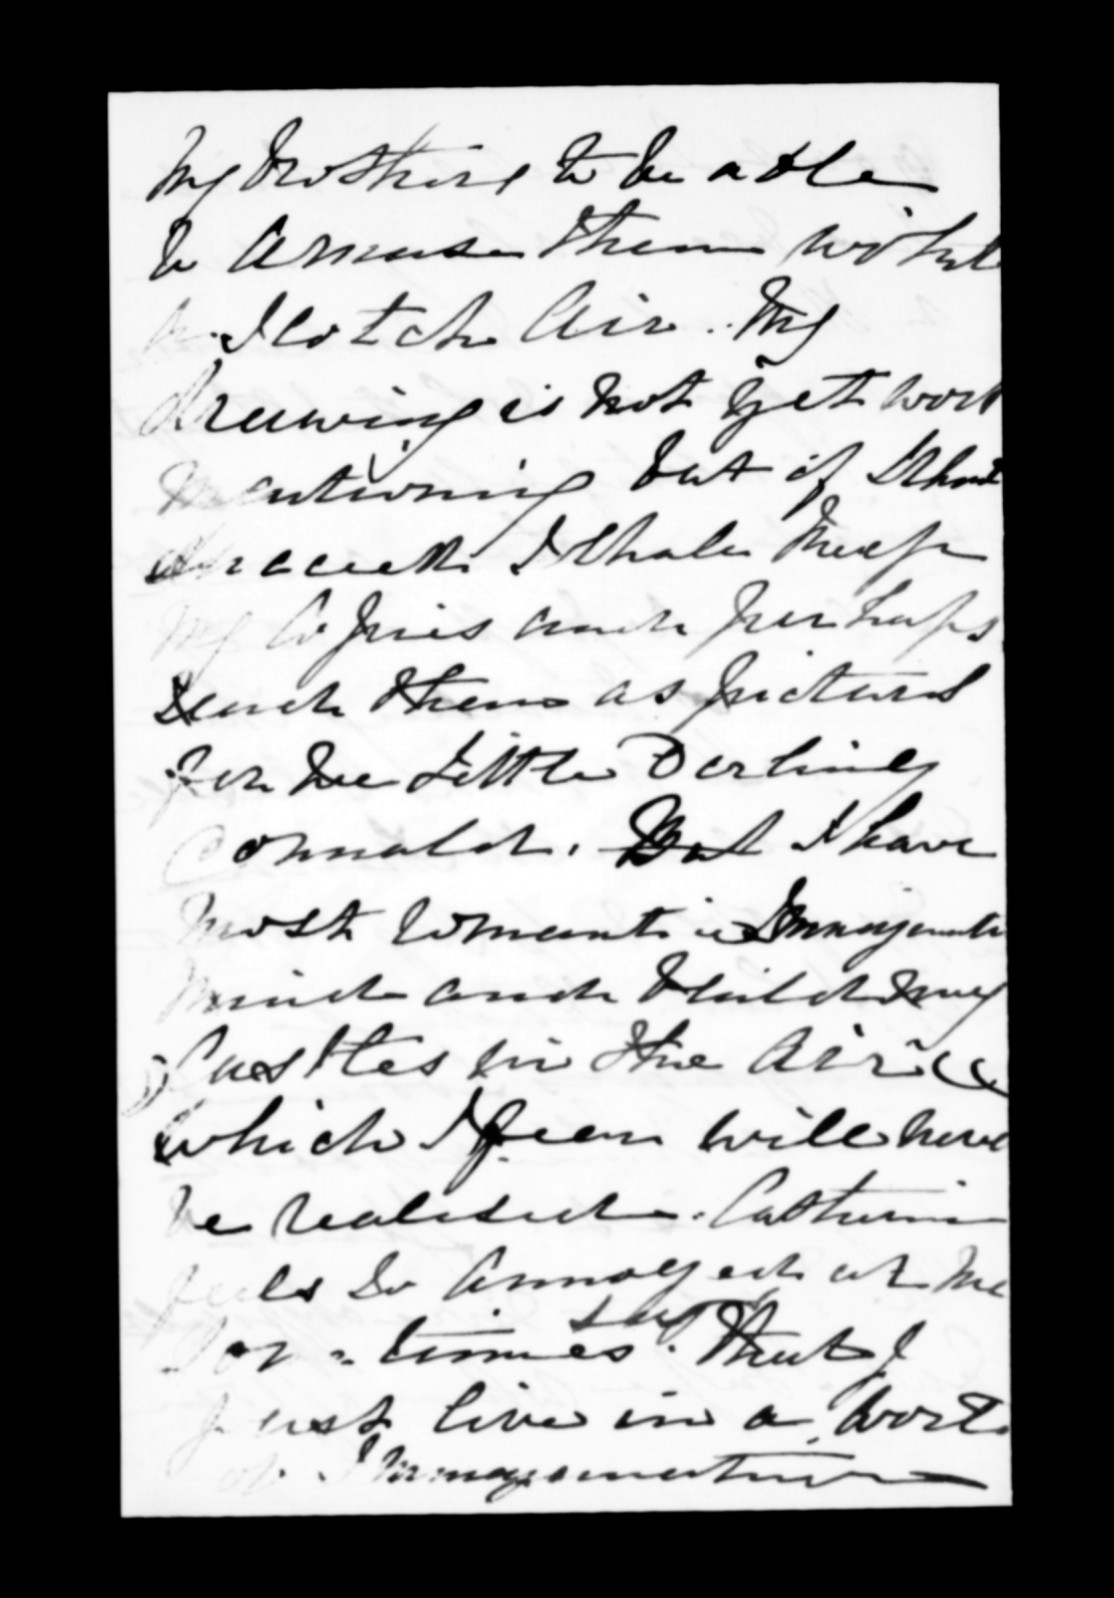 My Brothers to be able
to Amuse them with
a Scotch Air. My
drawing is not yet wort
mentioning but if I should
succeed I shall keep
my Copies and perhaps
send them as pictures
for the Little Darling
Donald. But I have
most romantic Immaginat
mind and build my
Castles in the Air
which I fear will never
be realised. Catherine
feels so Annoyed at me
some times says that I
just live in a World
of Immagination